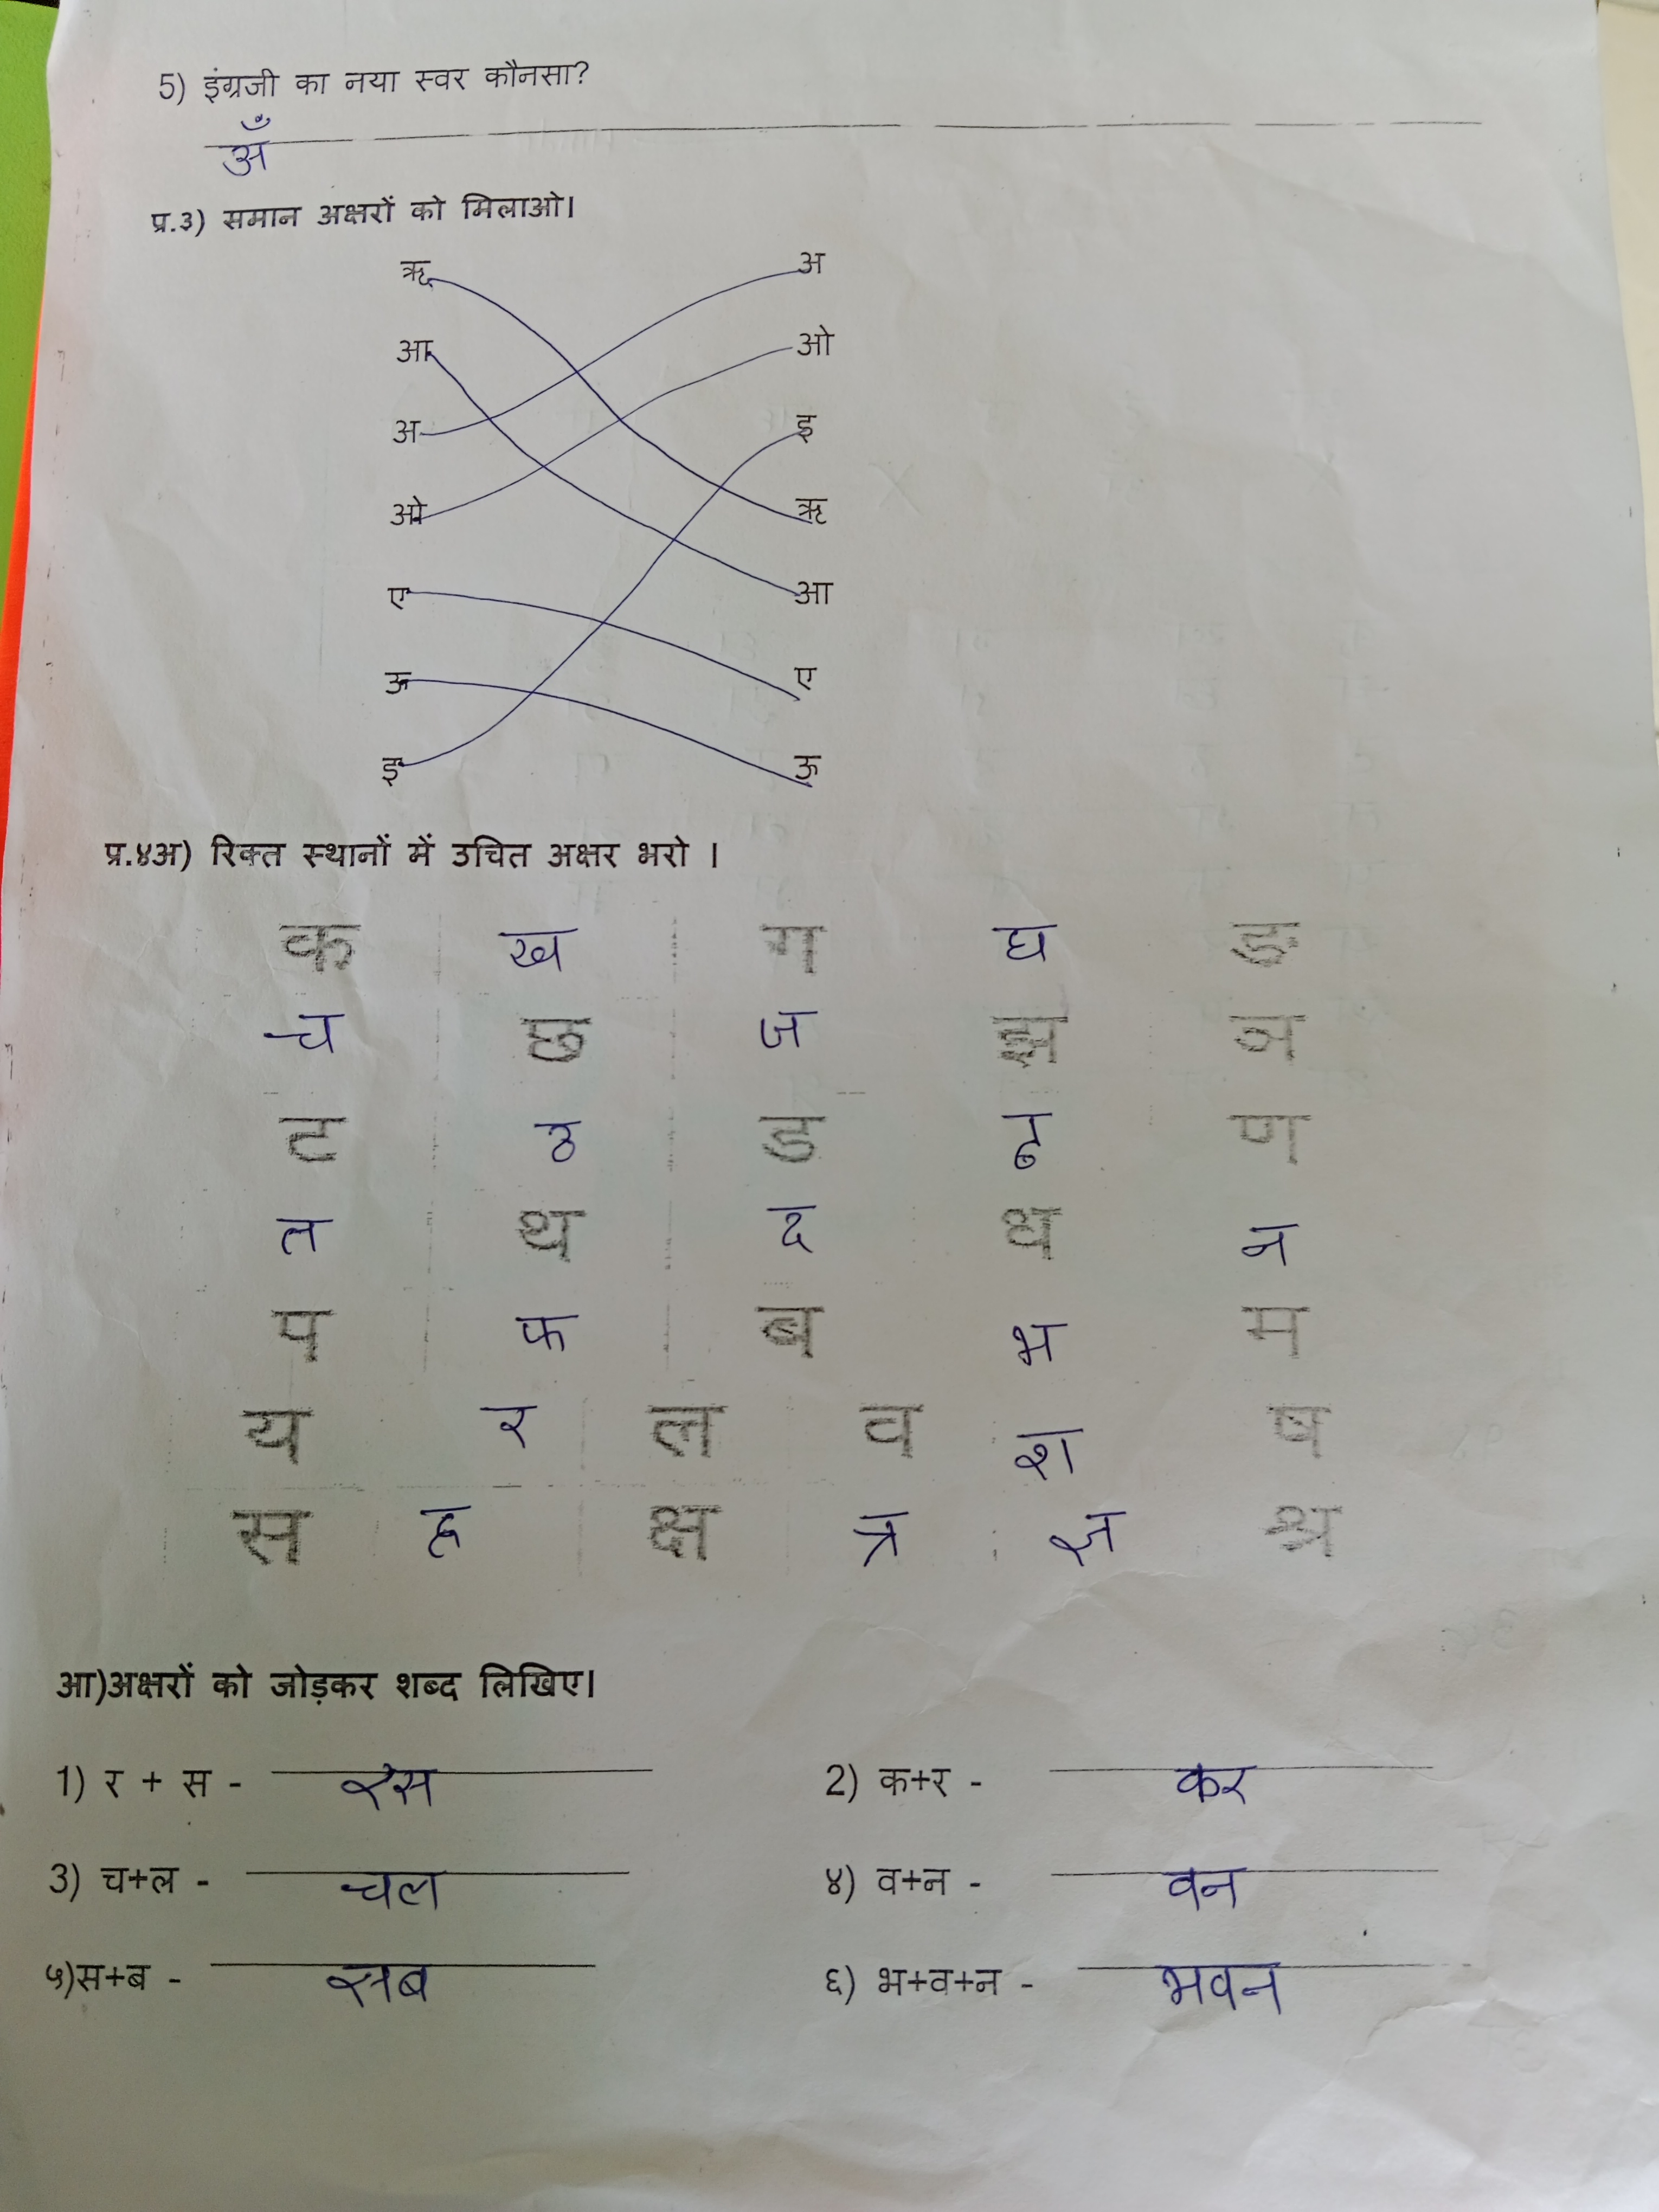 5) इंग्रजी का नया स्वर कौनसा?
अँ
प्र.३) समान अक्षरों को मिलाओ।
ऋ अ
आ ओ
अ इ
ओ ऋ
ए आ
ऊ ए
इ ऊ
प्र.४अ) रिक्त स्थानों में उचित अक्षर भरो ।
क ख ग घ ङ
च छ ज झ ञ
ट ठ ड ढ ण
त थ द ध न
प फ ब भ म
य र ल व श ष
स ह क्ष त्र ज्ञ श्र
आ)अक्षरों को जोड़कर शब्द लिखिए।
1) र + स - रस 2) क+र - कर
3) च+ल - चल ४) व+न - वन
५)स+ब - सब ६) भ+व+न - भवन